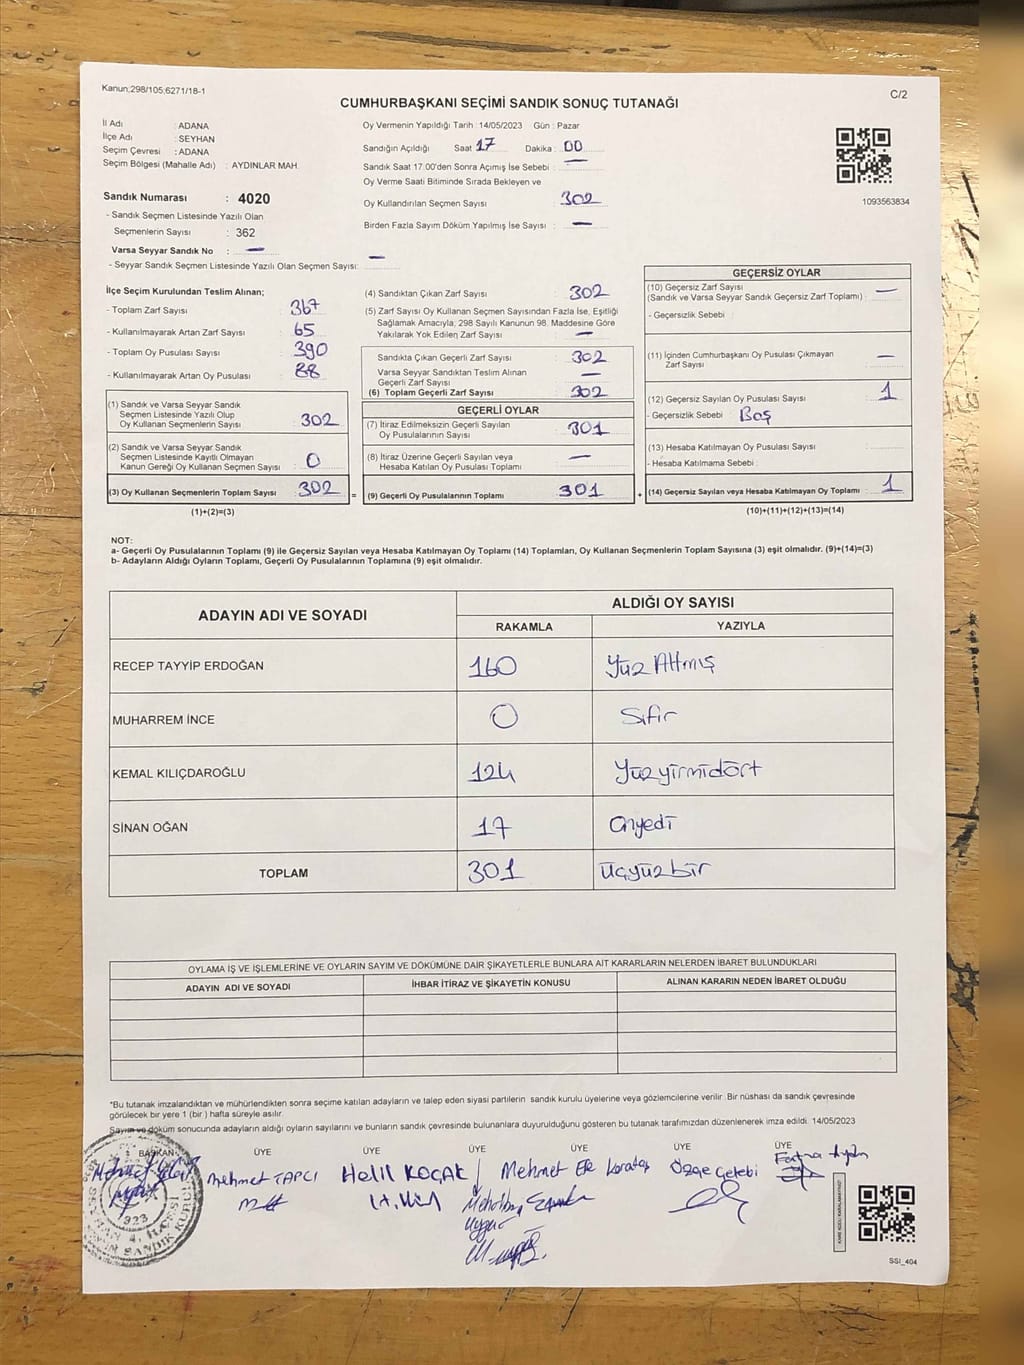 Kanun;298/105;6271/18-1
C/2
CUMHURBAŞKANI SEÇİMİ SANDIK SONUÇ TUTANAĞI
İl Adı : ADANA
İlçe Adı : SEYHAN
Seçim Çevresi : ADANA
Seçim Bölgesi (Mahalle Adı) : AYDINLAR MAH.
Sandık Numarası : 4020
- Sandık Seçmen Listesinde Yazılı Olan
Seçmenlerin Sayısı : 362
Varsa Seyyar Sandık No : —
- Seyyar Sandık Seçmen Listesinde Yazılı Olan Seçmen Sayısı: —
Oy Vermenin Yapıldığı Tarih : 14/05/2023 Gün : Pazar
Sandığın Açıldığı Saat 17 Dakika : 00
Sandık Saat 17:00'den Sonra Açımış İse Sebebi : —
Oy Verme Saati Bitiminde Sırada Bekleyen ve
Oy Kullandırılan Seçmen Sayısı : 302
Birden Fazla Sayım Döküm Yapılmış İse Sayısı : —
1093563834
İlçe Seçim Kurulundan Teslim Alınan;
- Toplam Zarf Sayısı : 367
- Kullanılmayarak Artan Zarf Sayısı : 65
- Toplam Oy Pusulası Sayısı : 390
- Kullanılmayarak Artan Oy Pusulası : 88
(1) Sandık ve Varsa Seyyar Sandık
Seçmen Listesinde Yazılı Olup
Oy Kullanan Seçmenlerin Sayısı : 302
(2) Sandık ve Varsa Seyyar Sandık
Seçmen Listesinde Kayıtlı Olmayan
Kanun Gereği Oy Kullanan Seçmen Sayısı : 0
(3) Oy Kullanan Seçmenlerin Toplam Sayısı : 302 =
(1)+(2)=(3)
(4) Sandıktan Çıkan Zarf Sayısı : 302
(5) Zarf Sayısı Oy Kullanan Seçmen Sayısından Fazla İse, Eşitliği
Sağlamak Amacıyla; 298 Sayılı Kanunun 98. Maddesine Göre
Yakılarak Yok Edilen Zarf Sayısı : —
Sandıkta Çıkan Geçerli Zarf Sayısı : 302
Varsa Seyyar Sandıktan Teslim Alınan
Geçerli Zarf Sayısı : —
(6) Toplam Geçerli Zarf Sayısı : 302
GEÇERLİ OYLAR
(7) İtiraz Edilmeksizin Geçerli Sayılan
Oy Pusulalarının Sayısı : 301
(8) İtiraz Üzerine Geçerli Sayılan veya
Hesaba Katılan Oy Pusulası Toplamı : —
(9) Geçerli Oy Pusulalarının Toplamı : 301 +
GEÇERSİZ OYLAR
(10) Geçersiz Zarf Sayısı
(Sandık ve Varsa Seyyar Sandık Geçersiz Zarf Toplamı) : —
- Geçersizlik Sebebi :
(11) İçinden Cumhurbaşkanı Oy Pusulası Çıkmayan
Zarf Sayısı : —
(12) Geçersiz Sayılan Oy Pusulası Sayısı : 1
- Geçersizlik Sebebi : Boş
(13) Hesaba Katılmayan Oy Pusulası Sayısı :
- Hesaba Katılmama Sebebi :
(14) Geçersiz Sayılan veya Hesaba Katılmayan Oy Toplamı : 1
(10)+(11)+(12)+(13)=(14)
NOT:
a- Geçerli Oy Pusulalarının Toplamı (9) ile Geçersiz Sayılan veya Hesaba Katılmayan Oy Toplamı (14) Toplamları, Oy Kullanan Seçmenlerin Toplam Sayısına (3) eşit olmalıdır. (9)+(14)=(3)
b- Adayların Aldığı Oyların Toplamı, Geçerli Oy Pusulalarının Toplamına (9) eşit olmalıdır.
ADAYIN ADI VE SOYADI ALDIĞI OY SAYISI
RAKAMLA YAZIYLA
RECEP TAYYİP ERDOĞAN 160 Yüz Altmış
MUHARREM İNCE 0 Sıfır
KEMAL KILIÇDAROĞLU 124 Yüzyirmidört
SİNAN OĞAN 17 Onyedi
TOPLAM 301 Üçyüzbir
OYLAMA İŞ VE İŞLEMLERİNE VE OYLARIN SAYIM VE DÖKÜMÜNE DAİR ŞİKAYETLERLE BUNLARA AİT KARARLARIN NELERDEN İBARET BULUNDUKLARI
ADAYIN ADI VE SOYADI İHBAR İTİRAZ VE ŞİKAYETİN KONUSU ALINAN KARARIN NEDEN İBARET OLDUĞU
*Bu tutanak imzalandıktan ve mühürlendikten sonra seçime katılan adayların ve talep eden siyasi partilerin sandık kurulu üyelerine veya gözlemcilerine verilir. Bir nüshası da sandık çevresinde
görülecek bir yere 1 (bir) hafta süreyle asılır.
Sayım ve döküm sonucunda adayların aldığı oyların sayılarını ve bunların sandık çevresinde bulunanlara duyurulduğunu gösteren bu tutanak tarafımızdan düzenlenerek imza edildi. 14/05/2023
BAŞKAN ÜYE ÜYE ÜYE ÜYE ÜYE ÜYE
Mehmet TAPCI Helil KOÇAK Mehmet Efe Karataş Özge Çelebi Fatma Aydın
323
SSI_404